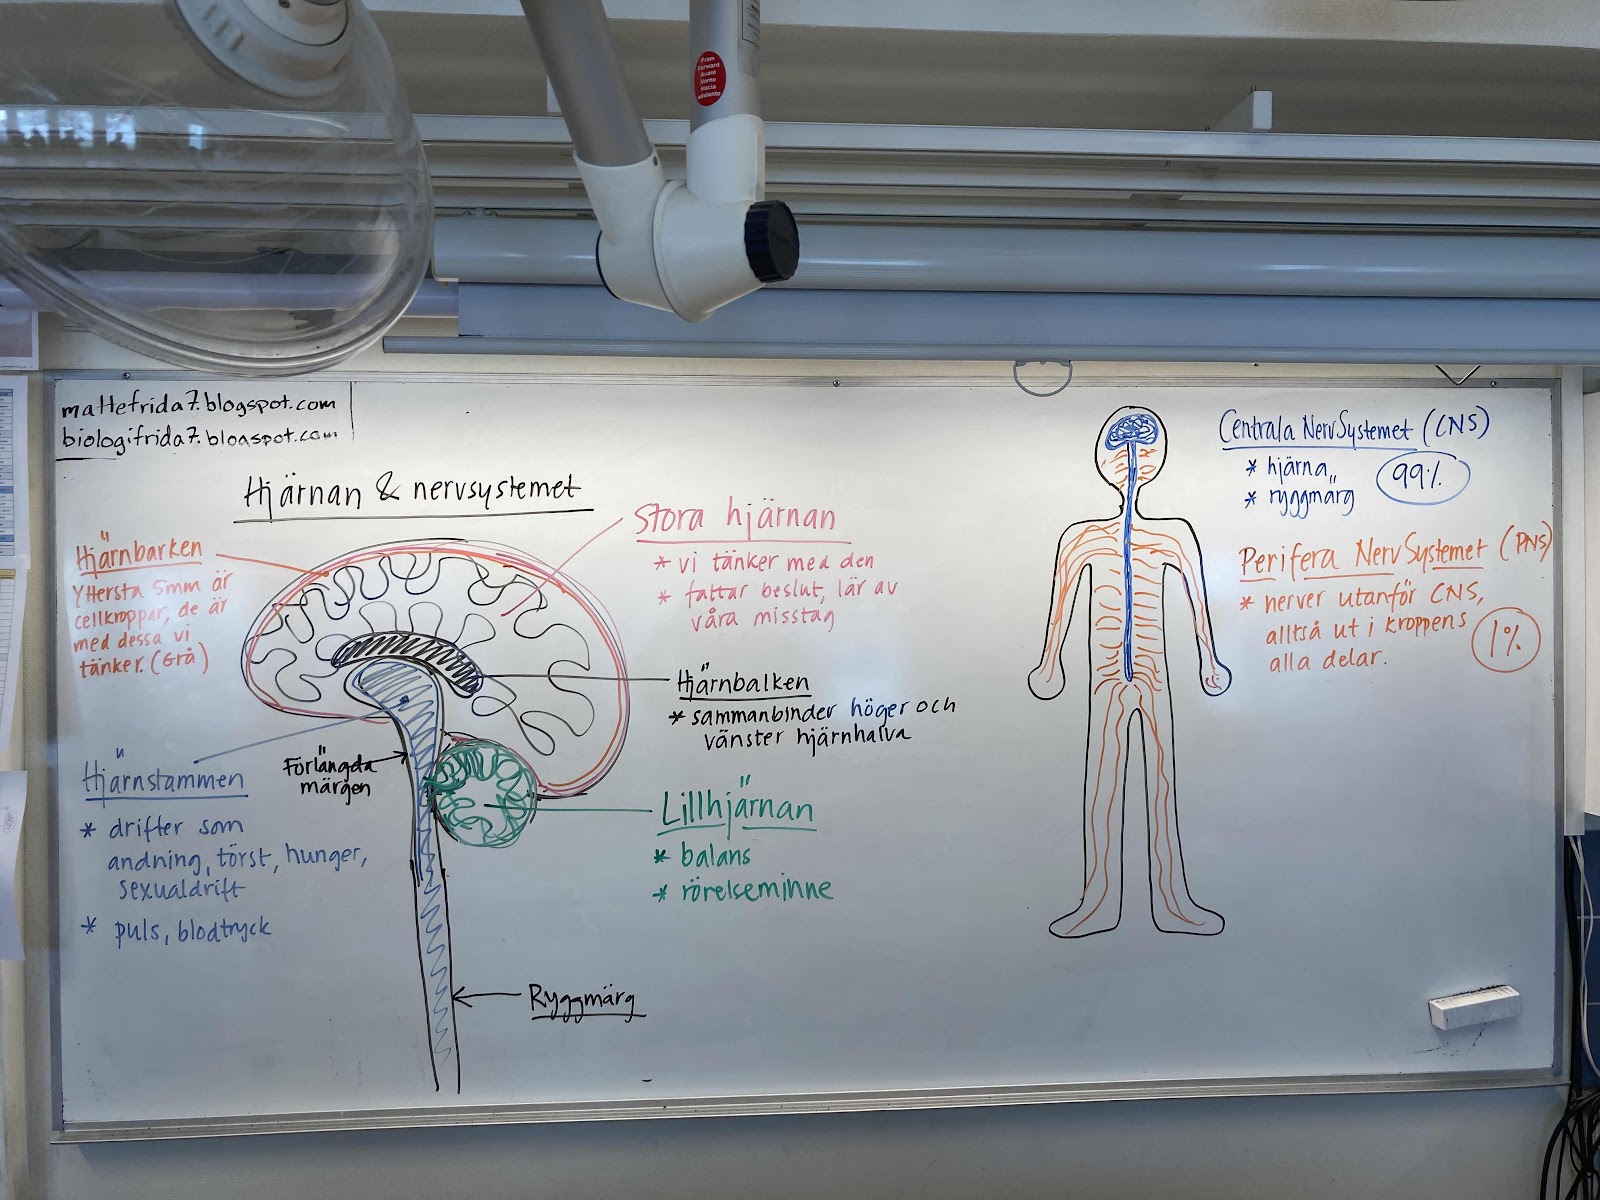 Fram
Forward
Avant
Vorne
Hacia
adelante
mattefrida7.blogspot.com
biologifrida7.blogspot.com
Hjärnan & nervsystemet
Hjärnbarken
Yttersta 5mm är
cellkroppar, de är
med dessa vi
tänker. (Grå)
Stora hjärnan
* vi tänker med den
* fattar beslut, lär av
våra misstag
Hjärnbalken
* sammanbinder höger och
vänster hjärnhalva
Hjärnstammen
* drifter som
andning, törst, hunger,
sexualdrift
* puls, blodtryck
Förlängda
märgen
Lillhjärnan
* balans
* rörelseminne
Ryggmärg
Centrala NervSystemet (CNS)
* hjärna
* ryggmärg
99%
Perifera NervSystemet (PNS)
* nerver utanför CNS,
alltså ut i kroppens
alla delar.
1%